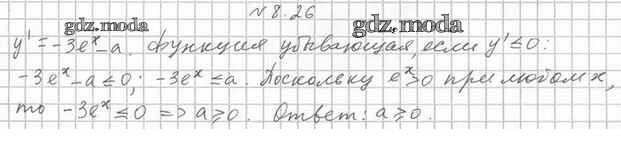 №8.26
gdz.moda gdz.moda
y' = -3eˣ-a. Функция убывающая, если y' ≤ 0:
-3eˣ-a ≤ 0; -3eˣ ≤ a. Поскольку eˣ>0 при любом x,
то -3eˣ ≤ 0 => a ≥ 0. Ответ: a ≥ 0.